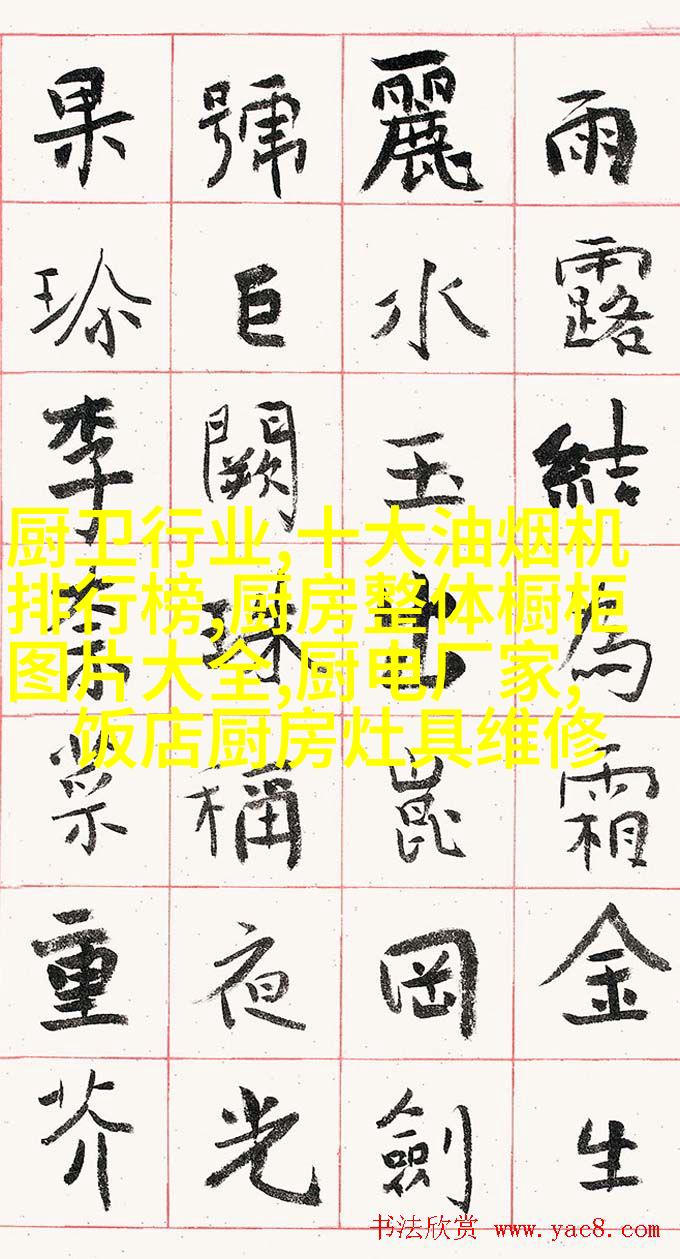 雨露結為霜金生
麗水玉出崑岡劍
號巨闕珠稱夜光
果珎李柰菜重芥
厨卫行业,十大油烟机
排行榜,厨房整体橱柜
图片大全,厨电厂家,
饭店厨房灶具维修
书法欣赏 www.yac8.com